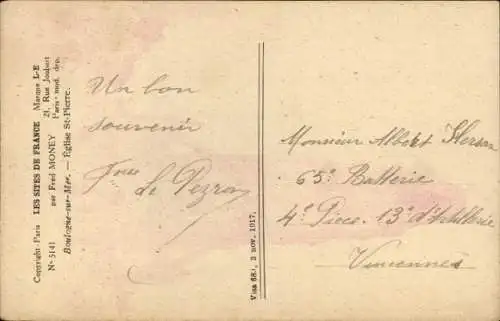 Copyright-Paris LES SITES DE FRANCE Marque L-E
par Fred MONEY 21, Rue Joubert
N° 5141 Paris mod. dép.
Boulogne-sur-Mer. — Église St-Pierre.
Un bon
souvenir
Le Pezron
Visa 683, 3 nov. 1917.
Monsieur Albert
65e Batterie
4e Piece. 13e d'Artillerie
Vincennes